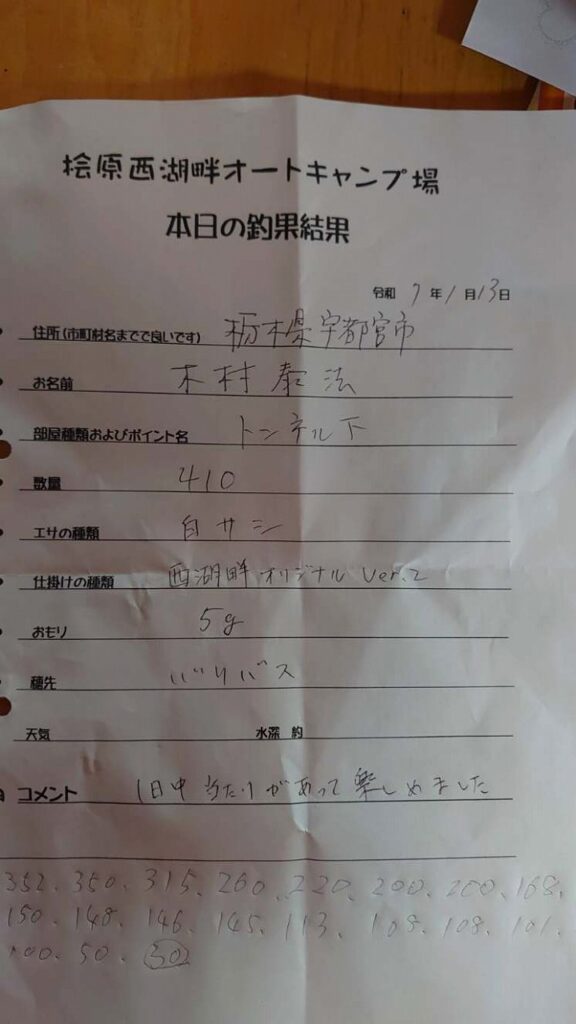 桧原西湖畔オートキャンプ場
本日の釣果結果
令和 7 年 1 月 13日
住所(市町村名までで良いです) 栃木県宇都宮市
お名前 木村 泰法
部屋種類およびポイント名 トンネル下
数量 410
エサの種類 白サシ
仕掛けの種類 西湖畔オリジナル Ver.2
おもり 5g
穂先 バリバス
天気 水深 約
コメント 1日中当たりがあって楽しめました
352、350、315、260、220、200、200、168、
150、148、146、145、113、109、108、101、
100、50、30